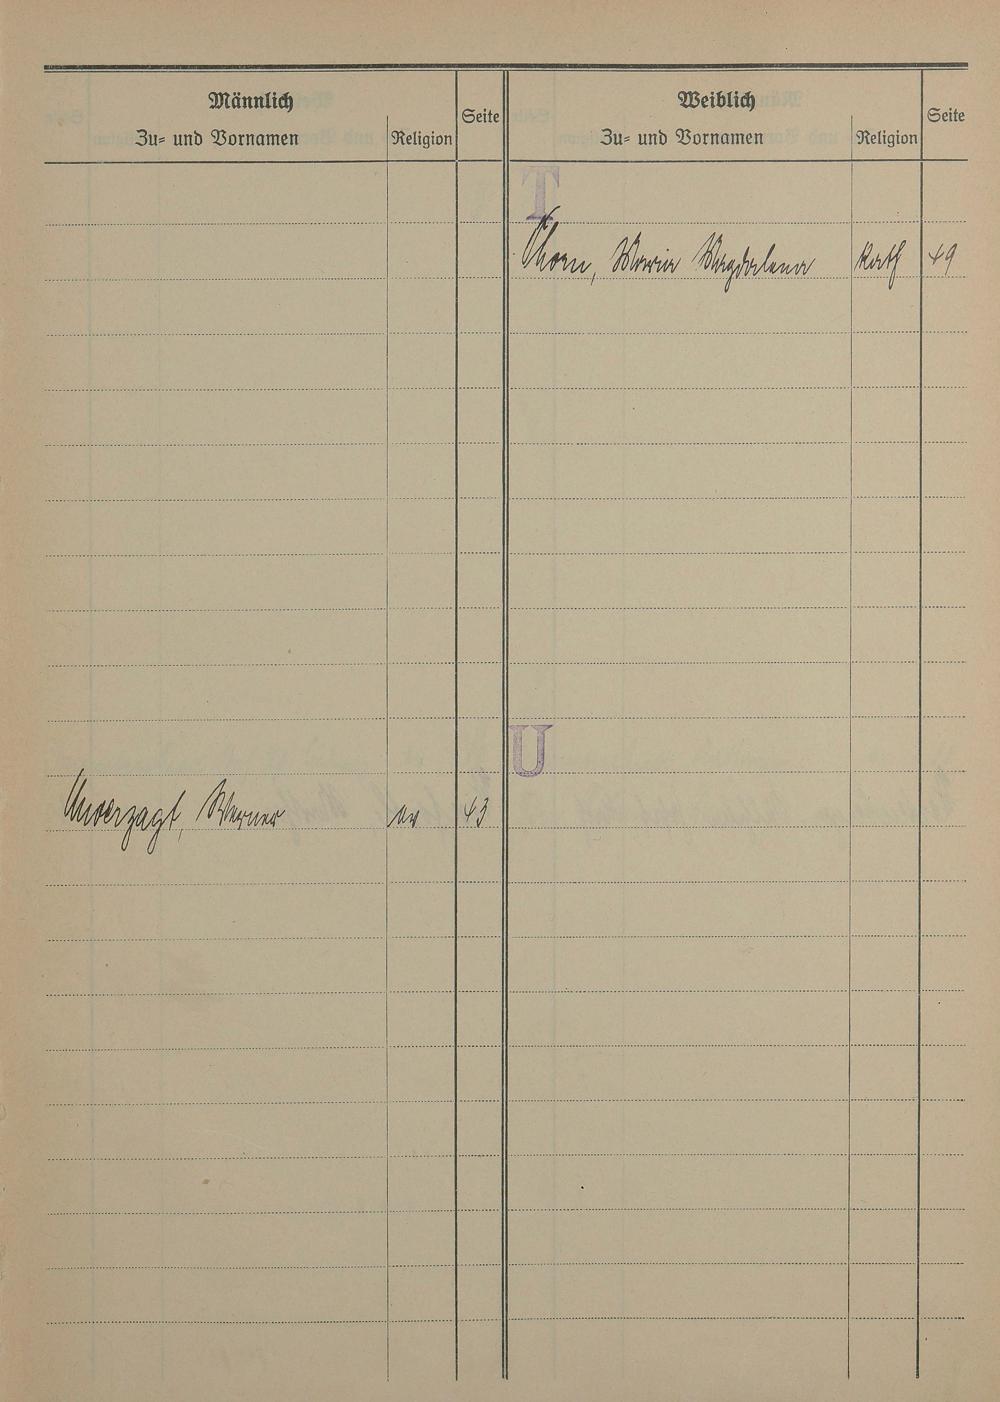 Männlich
Zu- und Vornamen
Religion
Seite
Weiblich
Zu- und Vornamen
Religion
Seite
T
Thorn, Maria Magdalena kath 49
U
Unverzagt, Werner ev 43